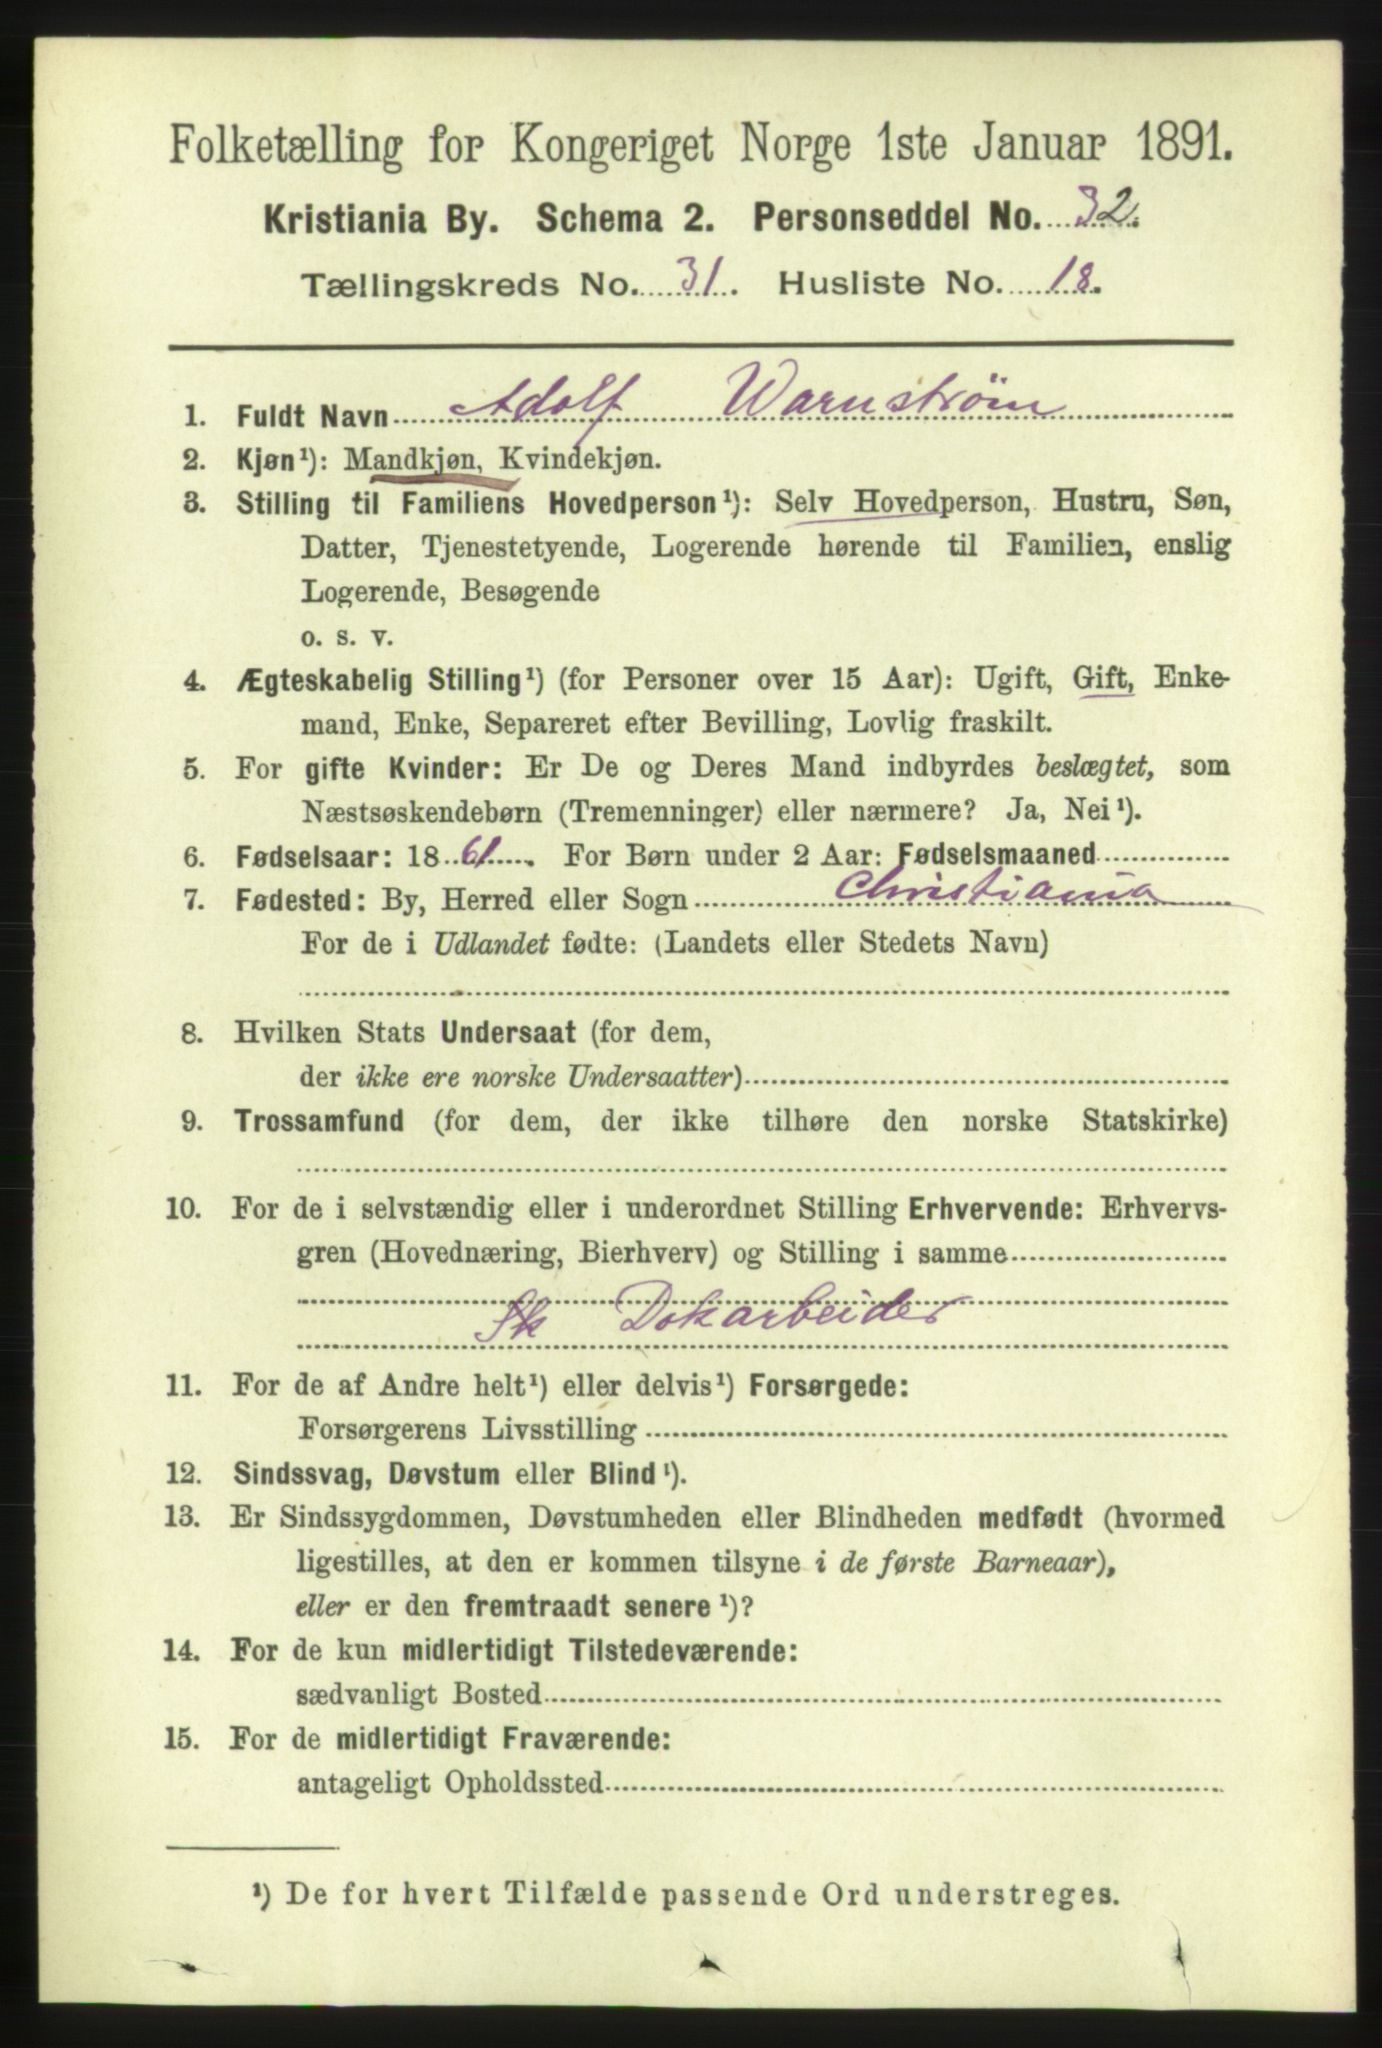 Folketælling for Kongeriget Norge 1ste Januar 1891.
Kristiania By. Schema 2. Personseddel No. 32.
Tællingskreds No. 31. Husliste No. 18.
1. Fuldt Navn Adolf Warnstrøm
2. Kjøn¹): Mandkjøn, Kvindekjøn.
3. Stilling til Familiens Hovedperson¹): Selv Hovedperson, Hustru, Søn,
Datter, Tjenestetyende, Logerende hørende til Familien, enslig
Logerende, Besøgende
o. s. v.
4. Ægteskabelig Stilling¹) (for Personer over 15 Aar): Ugift, Gift, Enke-
mand, Enke, Separeret efter Bevilling, Lovlig fraskilt.
5. For gifte Kvinder: Er De og Deres Mand indbyrdes beslægtet, som
Næstsøskendebørn (Tremenninger) eller nærmere? Ja, Nei¹).
6. Fødselsaar: 1861. For Børn under 2 Aar: Fødselsmaaned
7. Fødested: By, Herred eller Sogn Christiania
For de i Udlandet fødte: (Landets eller Stedets Navn)
8. Hvilken Stats Undersaat (for dem,
der ikke ere norske Undersaatter)
9. Trossamfund (for dem, der ikke tilhøre den norske Statskirke)
10. For de i selvstændig eller i underordnet Stilling Erhvervende: Erhvervs-
gren (Hovednæring, Bierhverv) og Stilling i samme
Dokarbeider
11. For de af Andre helt¹) eller delvis¹) Forsørgede:
Forsørgerens Livsstilling
12. Sindssvag, Døvstum eller Blind¹).
13. Er Sindssygdommen, Døvstumheden eller Blindheden medfødt (hvormed
ligestilles, at den er kommen tilsyne i de første Barneaar),
eller er den fremtraadt senere¹)?
14. For de kun midlertidigt Tilstedeværende:
sædvanligt Bosted
15. For de midlertidigt Fraværende:
antageligt Opholdssted
¹) De for hvert Tilfælde passende Ord understreges.